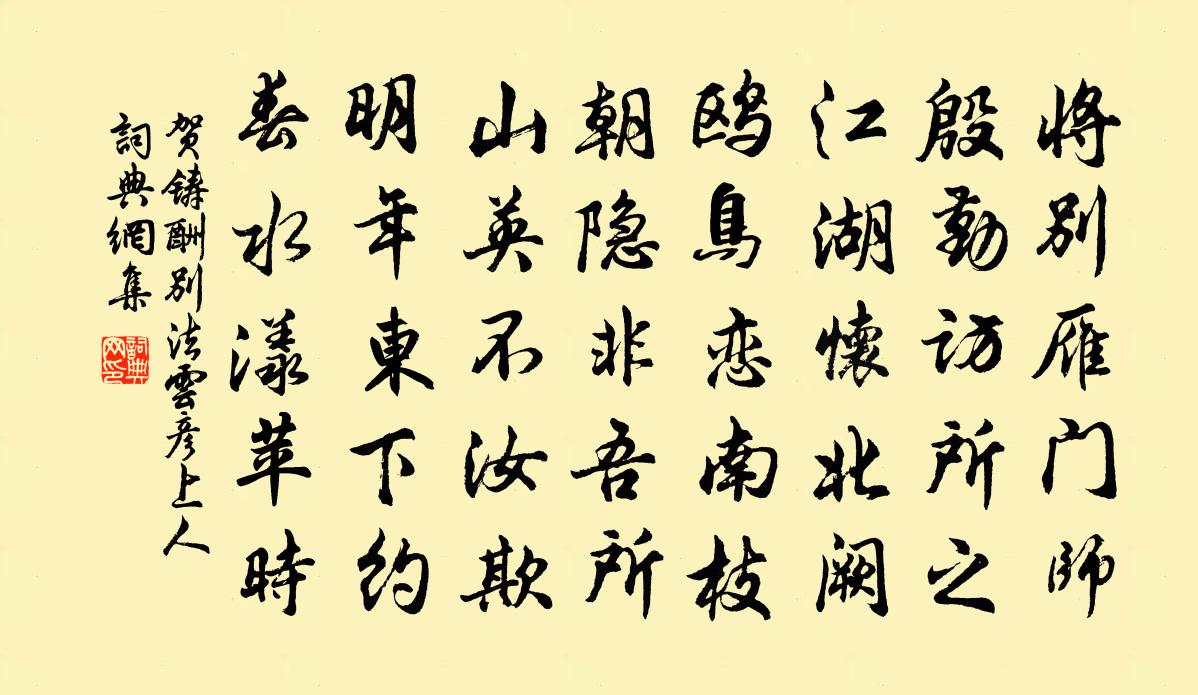 將別雁门師
殷勤访所之
江湖懷北阙
鸥鳥恋南枝
朝隐非吾所
山英不汝欺
明年東下约
春水漾苹時
贺铸酬別法雲彦上人
詞典網集
詞典网印